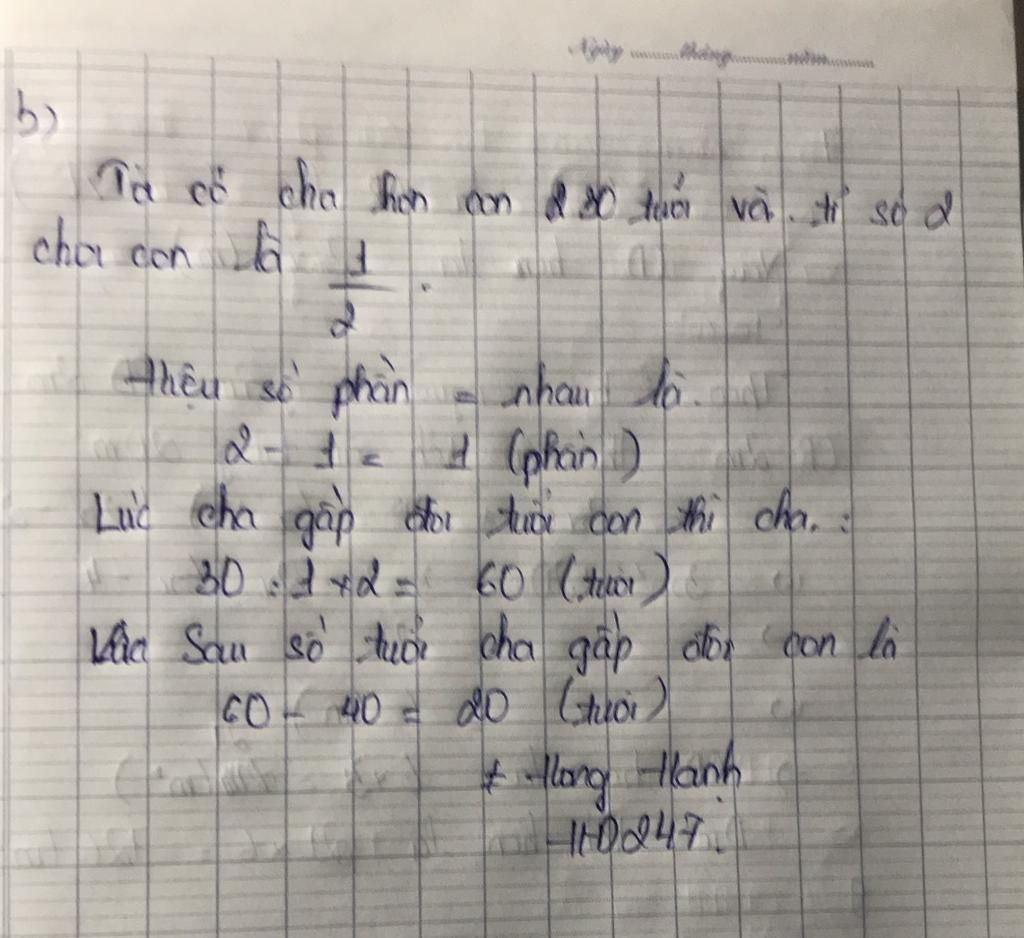 Ngày ............ tháng ............ năm ............
b)
Ta có cha hơn con 30 tuổi và tỉ số 2
cha con là 1/2.
Hiệu số phần = nhau là.
2 - 1 = 1 (phần)
Lúc cha gấp đôi tuổi con thì cha :
30 : 1 x 2 = 60 (tuổi)
Sau số tuổi cha gấp đôi con là
60 - 40 = 20 (tuổi)
Hong Hạnh
HD247.